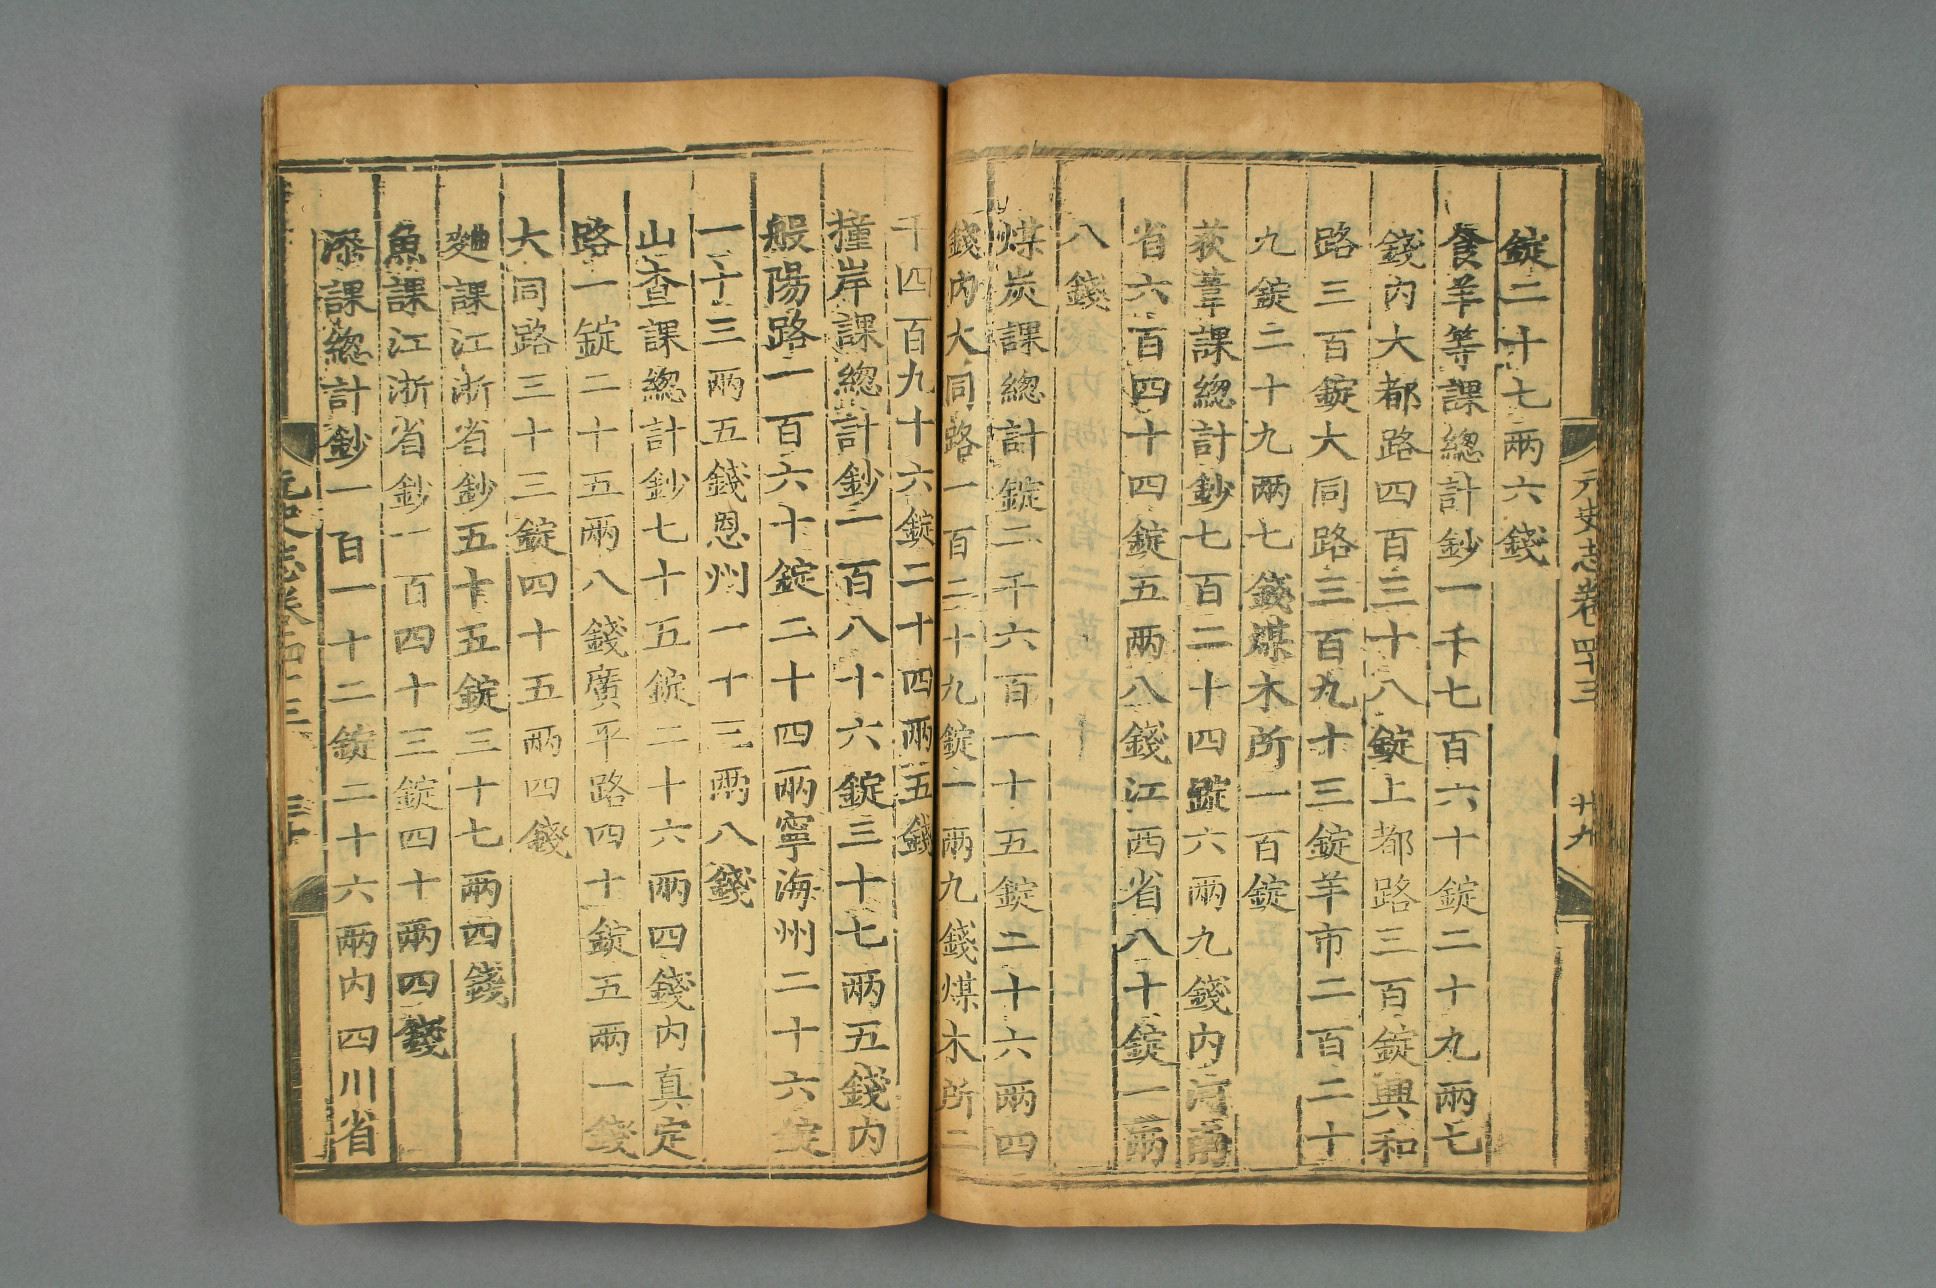 元史志卷四十三
廿九
錠二十七兩六錢
食羊等課總計鈔一千七百六十錠二十九兩七
錢內大都路四百三十八錠上都路三百錠興和
路三百錠大同路三百九十三錠羊市二百二十
九錠二十九兩七錢煤木所一百錠
荻葦課總計鈔七百二十四錠六兩九錢內河南
省六百四十四錠五兩八錢江西省八十錠一兩
八錢
煤炭課總計鈔二千六百一十五錠二十六兩四
錢內大同路一百二十九錠一兩九錢煤木所二
千四百九十六錠二十四兩五錢
撞岸課總計鈔一百八十六錠三十七兩五錢內
般陽路一百六十錠二十四兩寧海州二十六錠
一十三兩五錢恩州一十三兩八錢
山查課總計鈔七十五錠二十六兩四錢內真定
路一錠二十五兩八錢廣平路四十錠五兩一錢
大同路三十三錠四十五兩四錢
麯課江浙省鈔五十五錠三十七兩四錢
魚課江浙省鈔一百四十三錠四十兩四錢
漆課總計鈔一百一十二錠二十六兩內四川省
元史志卷四十三
三十